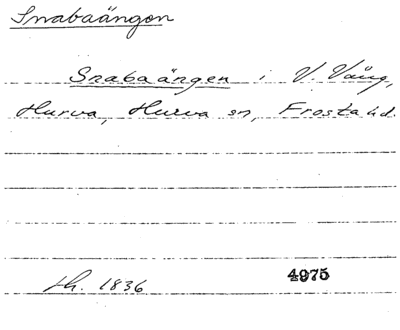 Snabaängen
Snabaängen i V. Vång,
Hurva, Hurva sn, Frosta hd.
lh. 1836 4975